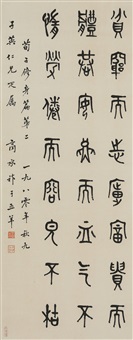 貧窮而志廣富貴而
體恭安燕而血气不
惰勞倦而容皃不枯
荀子修身篇第二 一九八〇年秋九
子英仁兄 属 商承祚于五羊